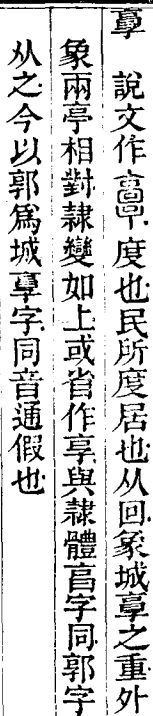 𩫏 說文作𩫖度也民所度居也从回象城𩫏之重外
象兩亭相對隸變如上或省作享與隸體亯字同郭字
从之今以郭爲城𩫏字同音通假也